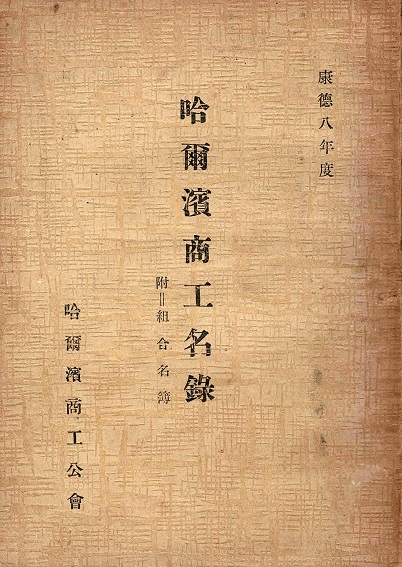 康德八年度
哈爾濱商工名錄
附=組合名簿
哈爾濱商工公會